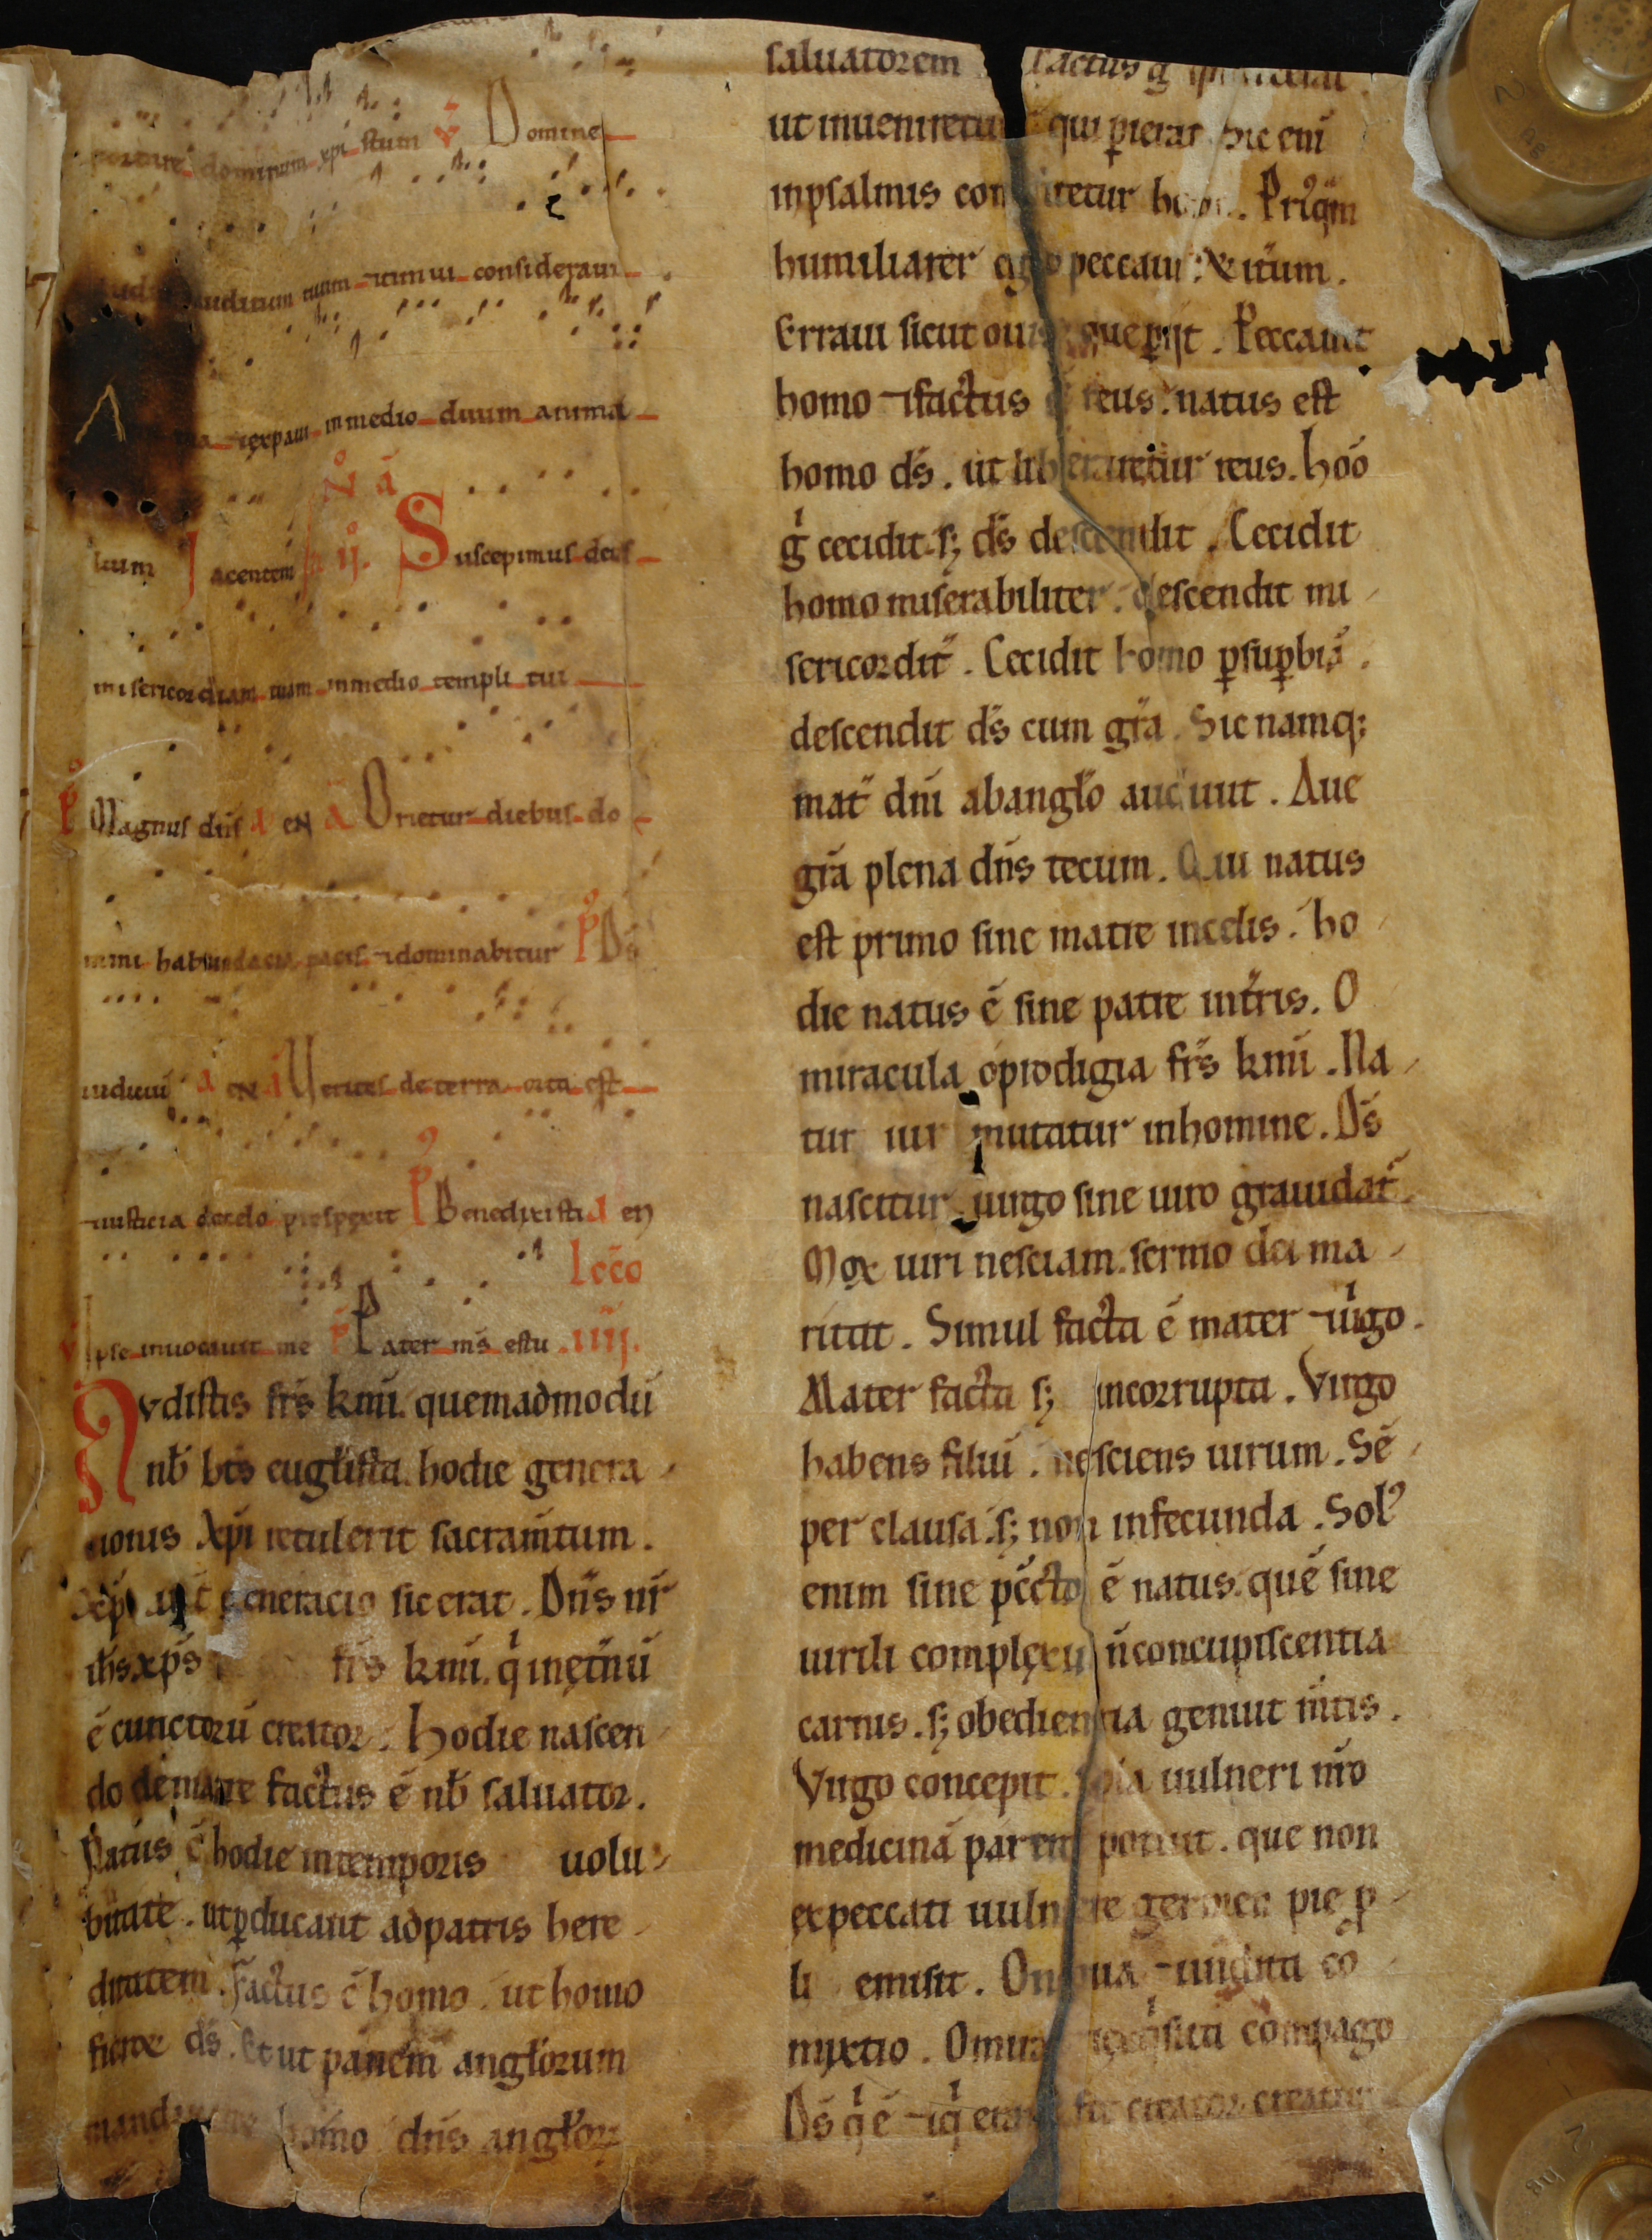 portare dominum xpistum ℣ Domine
auditum tuum ⁊timui consideraui
⁊expaui in medio duum anima
lium Jacentem Jn ij. No a Suscepimus deus
misericordiam tuam in medio templi tui
P Magnus dn̄s a en a Orietur diebus do
mini habundacia pacis ⁊dominabitur P Ds̄
iudiciū a en a Ueritas de terra orta est
⁊iusticia de celo prospexit P Benedixisti a en
Lcc̄o
℣ Ipse inuocauit me ℟ Pater ms̄ es tu .iiij.
Avdistis frs̄ kmī. quemadmodū
nb̄ bt̄s eugl̄ista. hodie genera
tionis Xp̄i retulerit sacram̄tum.
Xp̄i generacio sic erat. Dn̄s nr̄
ih̄s xp̄s frs̄ kmī. qi in et̄nū
ē cunctorū creator. Hodie nascen
do de matre factus ē nb̄ saluator.
Natus ē hodie in temporis uolu
bilitate. ut ꝑducant ad patris here
ditatem. Factus ē homo. ut homo
fieret ds̄. Et ut panem angl̄orum
homo dn̄s angl̄orꝝ
saluatorem factus g̾
ut inueniretur qui ꝑierat. Sic enī
in psalmis confitetur homo. Priꝰqm̄
humiliarer ego peccaui: & itūm.
Erraui sicut ouis que ꝑijt. Peccauit
homo ⁊factus ē reus. natus est
homo ds̄. ut liberaretur reus. hōo
g̾ cecidit. s; ds̄ descendit. Cecidit
homo miserabiliter. descendit mi
sericordit̄. Cecidit homo ꝑ suꝑbiā.
descendit ds̄ cum grā. Sic namq;
mat̄ dnī ab angl̄o audiuit. Aue
grā plena dn̄s tecum. Qui natus
est primo sine matre in celis. ho
die natus ē sine patre in tr̄ris. O
miracula o prodigia frs̄ kmī. Na
tur iur mutatur in homine. Ds̄
nascitur. uirgo sine uiro grauidat̄.
Mox uiri nesciam. sermo dei ma
ritat. Simul facta ē mater ⁊uigo.
Mater facta s; incorrupta. Virgo
habens filiū. nesciens uirum. Sē
per clausa. s; non infecunda. Solꝰ
enim sine pcc̄to ē natus. quē sine
uirili complexu n̄ concupiscentia
carnis. s; obedientia genuit m̄tis.
Virgo concepit. sola uulneri nr̄o
medicinā parere potuit. que non
ex peccati uulnere germen pie ꝓ
li emisit. Omnia ⁊ co
mixtio. Omnia compago
Ds̄ qi ē ⁊qi erat fit creator creatur